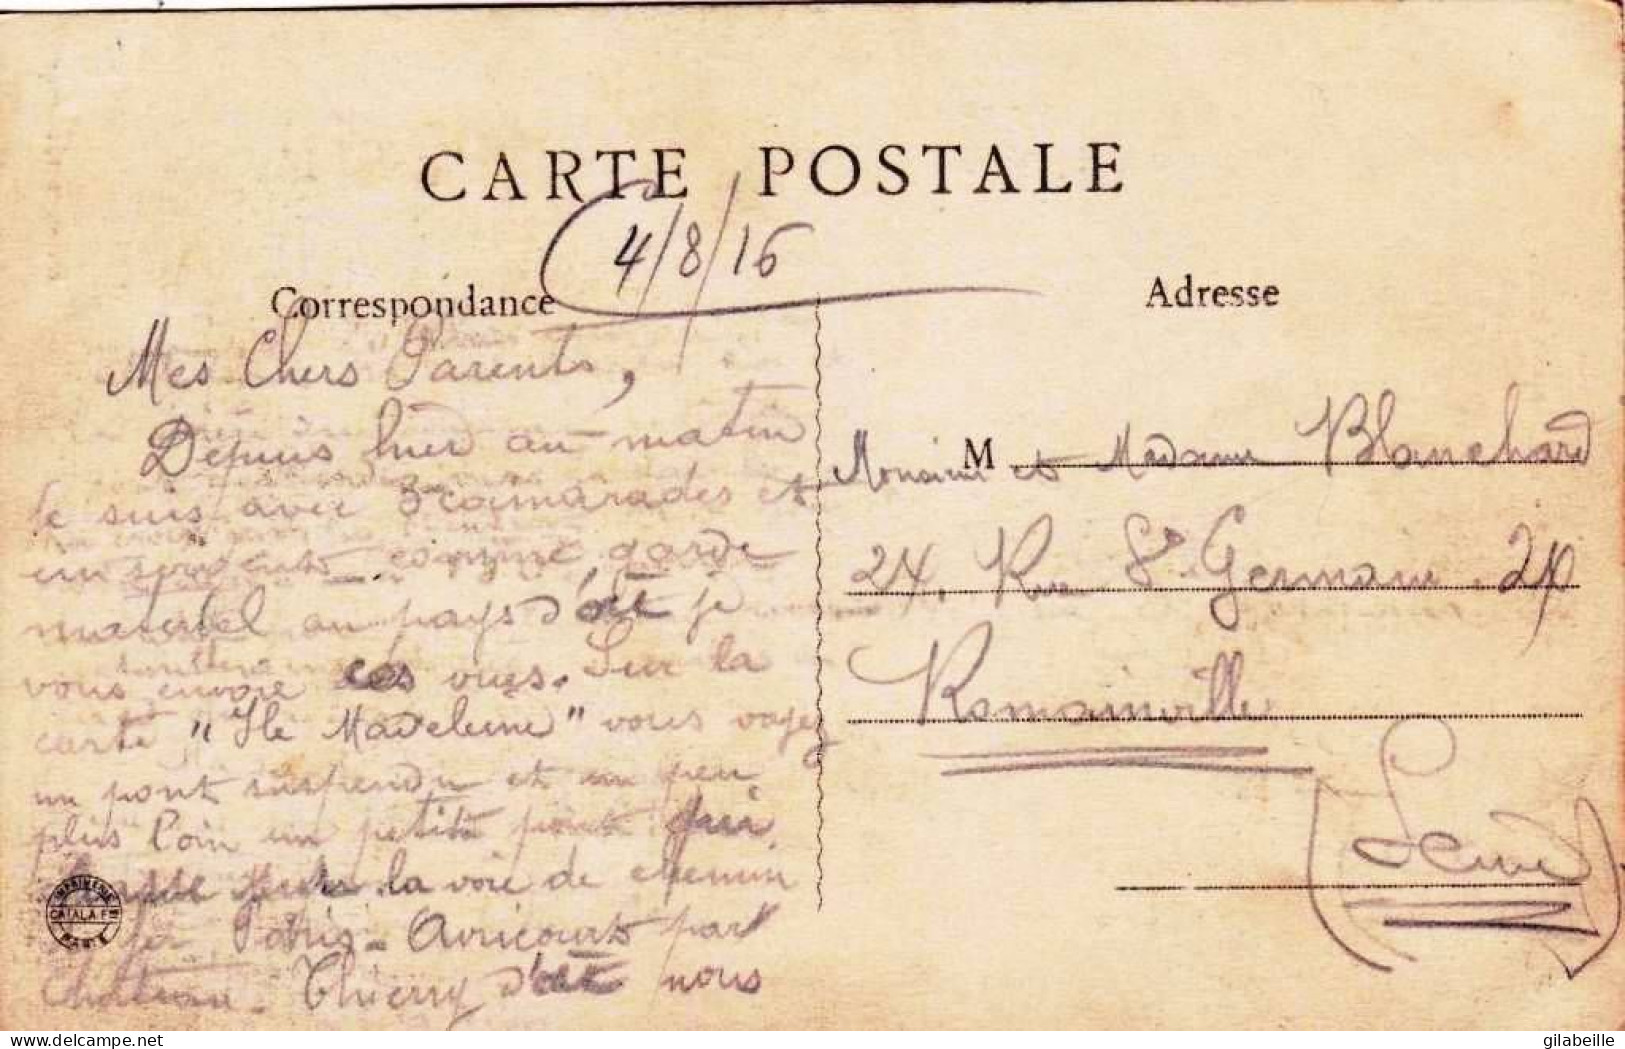 CARTE POSTALE
4/8/16
Correspondance
Adresse
Mes Chers Parents,
Depuis hier au matin
Je suis avec 3 camarades et
un comme garde
materiel au pays d'où je
vous envoie ces vues. Sur la
carte "Ile Madeleine" vous voyez
un pont suspendu et un peu
plus loin un petit pont qui
la voie de chemin
fer Paris-Avricourt par
Chateau-Thierry d'où nous
IMPRIMERIE
CATALA Frs
PARIS
M
Monsieur et Madame Blanchard
24, Rue St Germain, 24
Romainville
Seine
delcampe.net
gilabeille